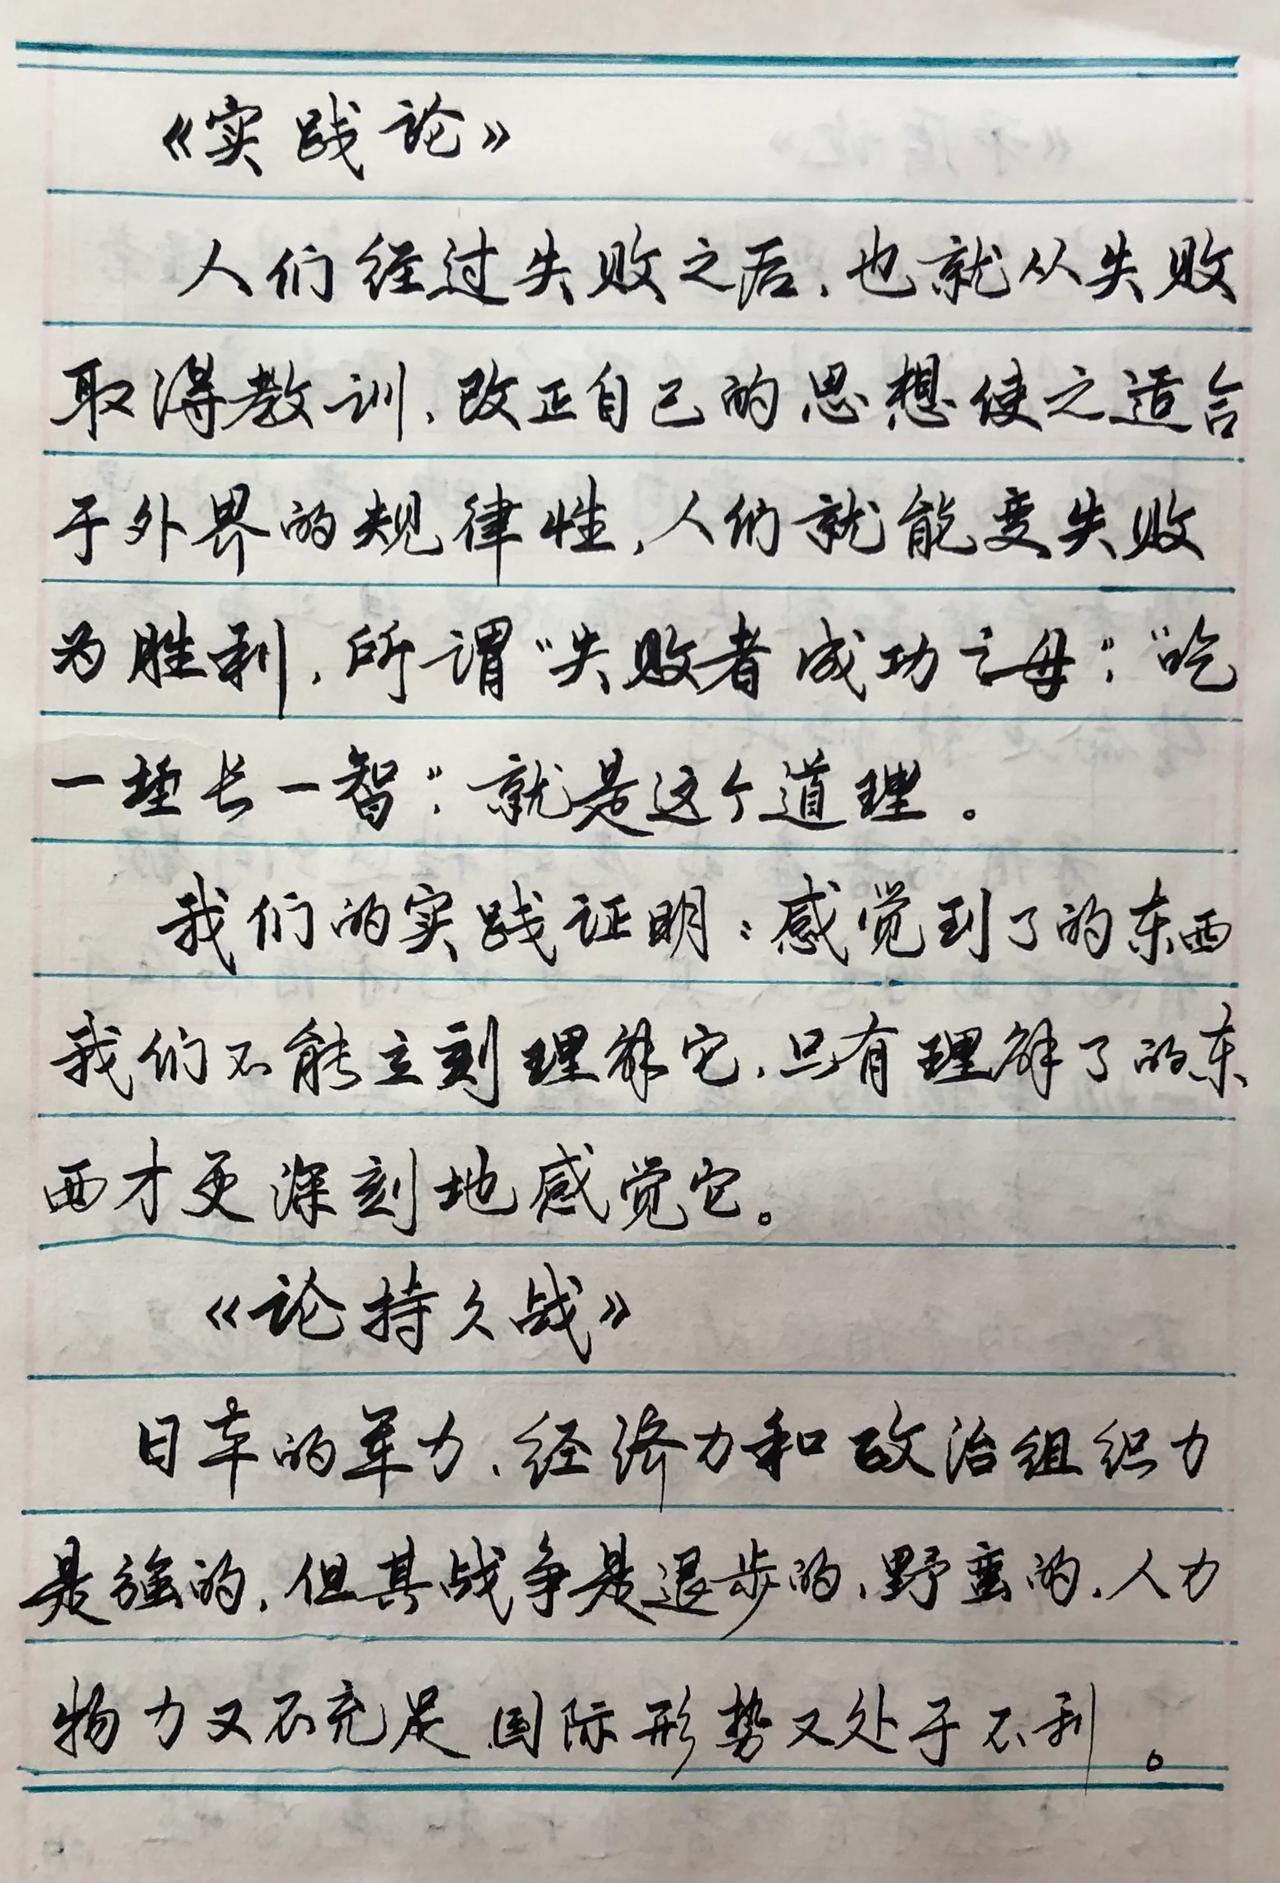 《实践论》
人们经过失败之后，也就从失败
取得教训，改正自己的思想使之适合
于外界的规律性，人们就能变失败
为胜利，所谓“失败者成功之母”，“吃
一堑长一智”，就是这个道理。
我们的实践证明：感觉到了的东西
我们不能立刻理解它，只有理解了的东
西才更深刻地感觉它。
《论持久战》
日本的军力、经济力和政治组织力
是强的，但其战争是退步的，野蛮的，人力
物力又不充足，国际形势又处于不利。